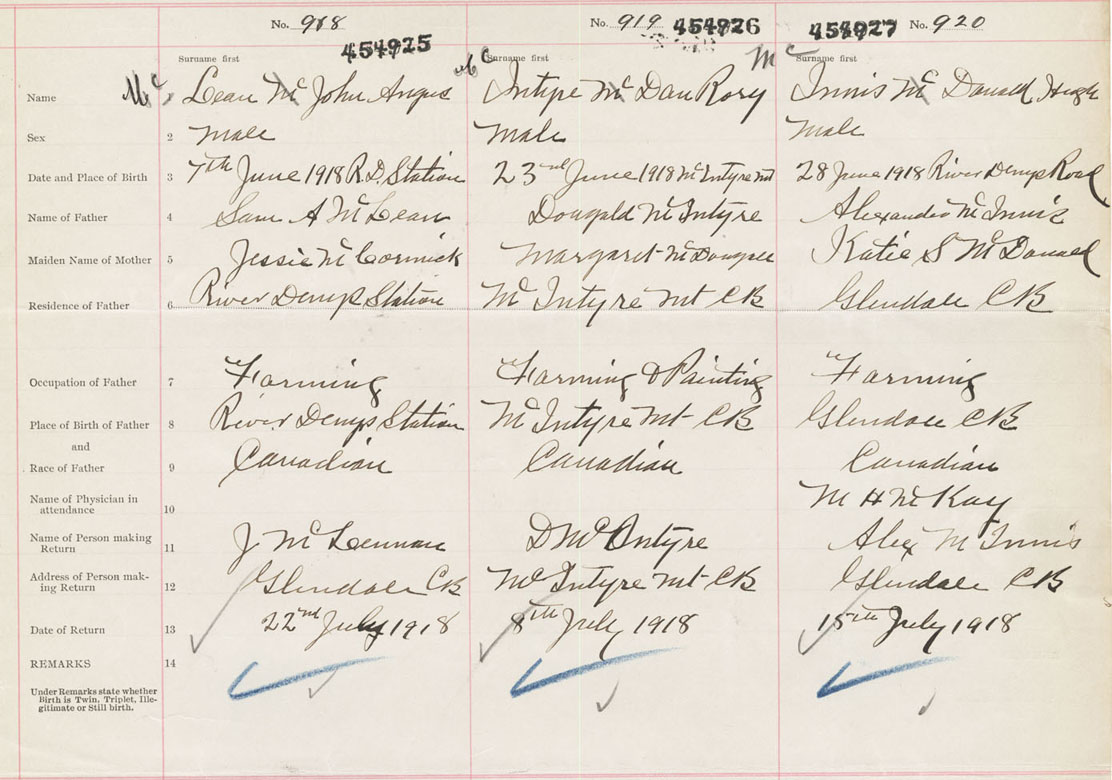 No. 918 No. 919 454926 454927 No. 920
454925
Surname first Surname first Surname first
Name Mc Lean Mc John Angus Mc Intyre Mc Dan Rory Mc Innis Mc Donald Hugh
Sex 2 Male Male Male
Date and Place of Birth 3 7th June 1918 R.D. Station 23rd June 1918 McIntyre Mt 28 June 1918 River Denys Road
Name of Father 4 Sam A McLean Dougald McIntyre Alexander McInnis
Maiden Name of Mother 5 Jessie McCormick Margaret McDougall Katie S McDonald
Residence of Father 6 River Denys Station McIntyre Mt CB Glendale CB
Occupation of Father 7 Farming Farming & Painting Farming
Place of Birth of Father 8 River Denys Station McIntyre Mt CB Glendale CB
and
Race of Father 9 Canadian Canadian Canadian
Name of Physician in
attendance 10 M H McKay
Name of Person making
Return 11 J McLennan D McIntyre Alex McInnis
Address of Person mak-
ing Return 12 Glendale CB McIntyre Mt CB Glendale CB
Date of Return 13 22nd July 1918 8th July 1918 15th July 1918
REMARKS 14
Under Remarks state whether
Birth is Twin, Triplet, Ille-
gitimate or Still birth.